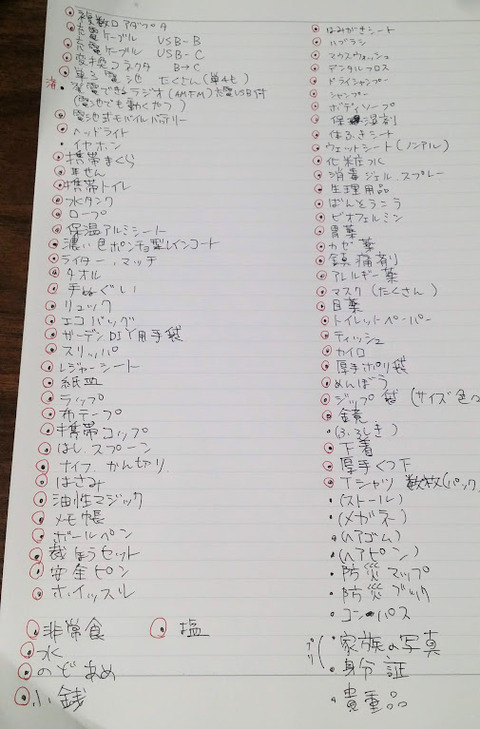 複数口アダプタ
充電ケーブル USB-B
充電ケーブル USB-C
変換コネクタ B→C
単3電池 たくさん(単4も)
済 発電できるラジオ(AM FM)充電USB付
(電池でも動くやつ)
電池式モバイルバッテリー
ヘッドライト
イヤホン
携帯まくら
耳せん
携帯トイレ
水タンク
ロープ
保温アルミシート
濃い色ポンチョ型レインコート
ライター、マッチ
タオル
手ぬぐい
リュック
エコバッグ
ガーデンDIY用手袋
スリッパ
レジャーシート
紙皿
ラップ
布テープ
携帯コップ
はし、スプーン
ナイフ、かん切り
はさみ
油性マジック
メモ帳
ボールペン
裁ほうセット
安全ピン
ホイッスル
非常食
塩
水
のどあめ
小銭
はみがきシート
ハブラシ
マウスウォッシュ
デンタルフロス
ドライシャンプー
シャンプー
ボディソープ
保湿剤
体ふきシート
ウェットシート(ノンアル)
化粧水
消毒ジェル、スプレー
生理用品
ばんそうこう
ビオフェルミン
胃薬
カゼ薬
鎮痛剤
アレルギー薬
マスク(たくさん)
目薬
トイレットペーパー
ティッシュ
カイロ
厚手ポリ袋
めんぼう
ジップ袋(サイズ色々
鏡
(ふろしき)
下着
厚手くつ下
Tシャツ 数枚(パック
(ストール)
(メガネ)
(ヘアゴム)
(ヘアピン)
防災マップ
防災ブック
コンパス
家族の写真
身分証
貴重品